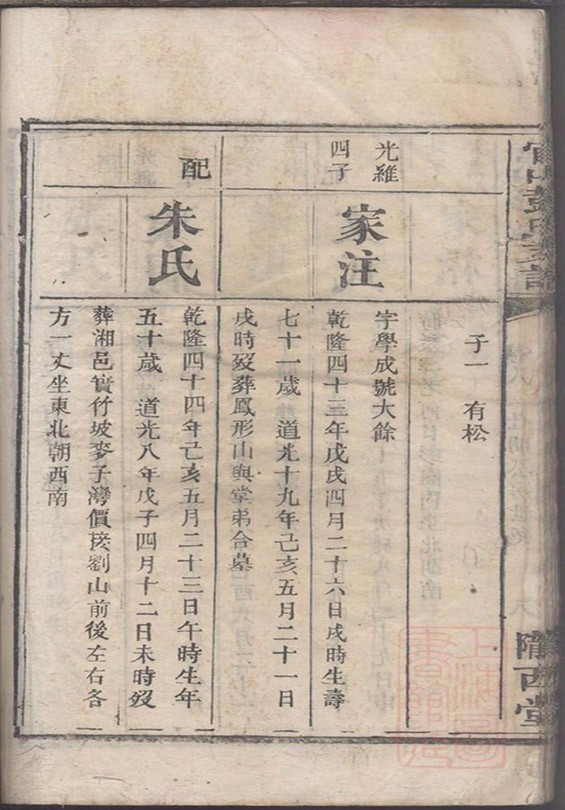 彭氏支譜
隴西堂
子一 有松
光維
四子
家注
字學成號大餘
乾隆四十三年戊戌四月二十六日戌時生壽
七十一歲 道光十九年己亥五月二十一日
戌時歿葬鳳形山與堂弟合墓
配
朱氏
乾隆四十四年己亥五月二十三日午時生年
五十歲 道光八年戊子四月十二日未時歿
葬湘邑實竹坡麥子灣價接劉山前後左右各
方一丈坐東北朝西南